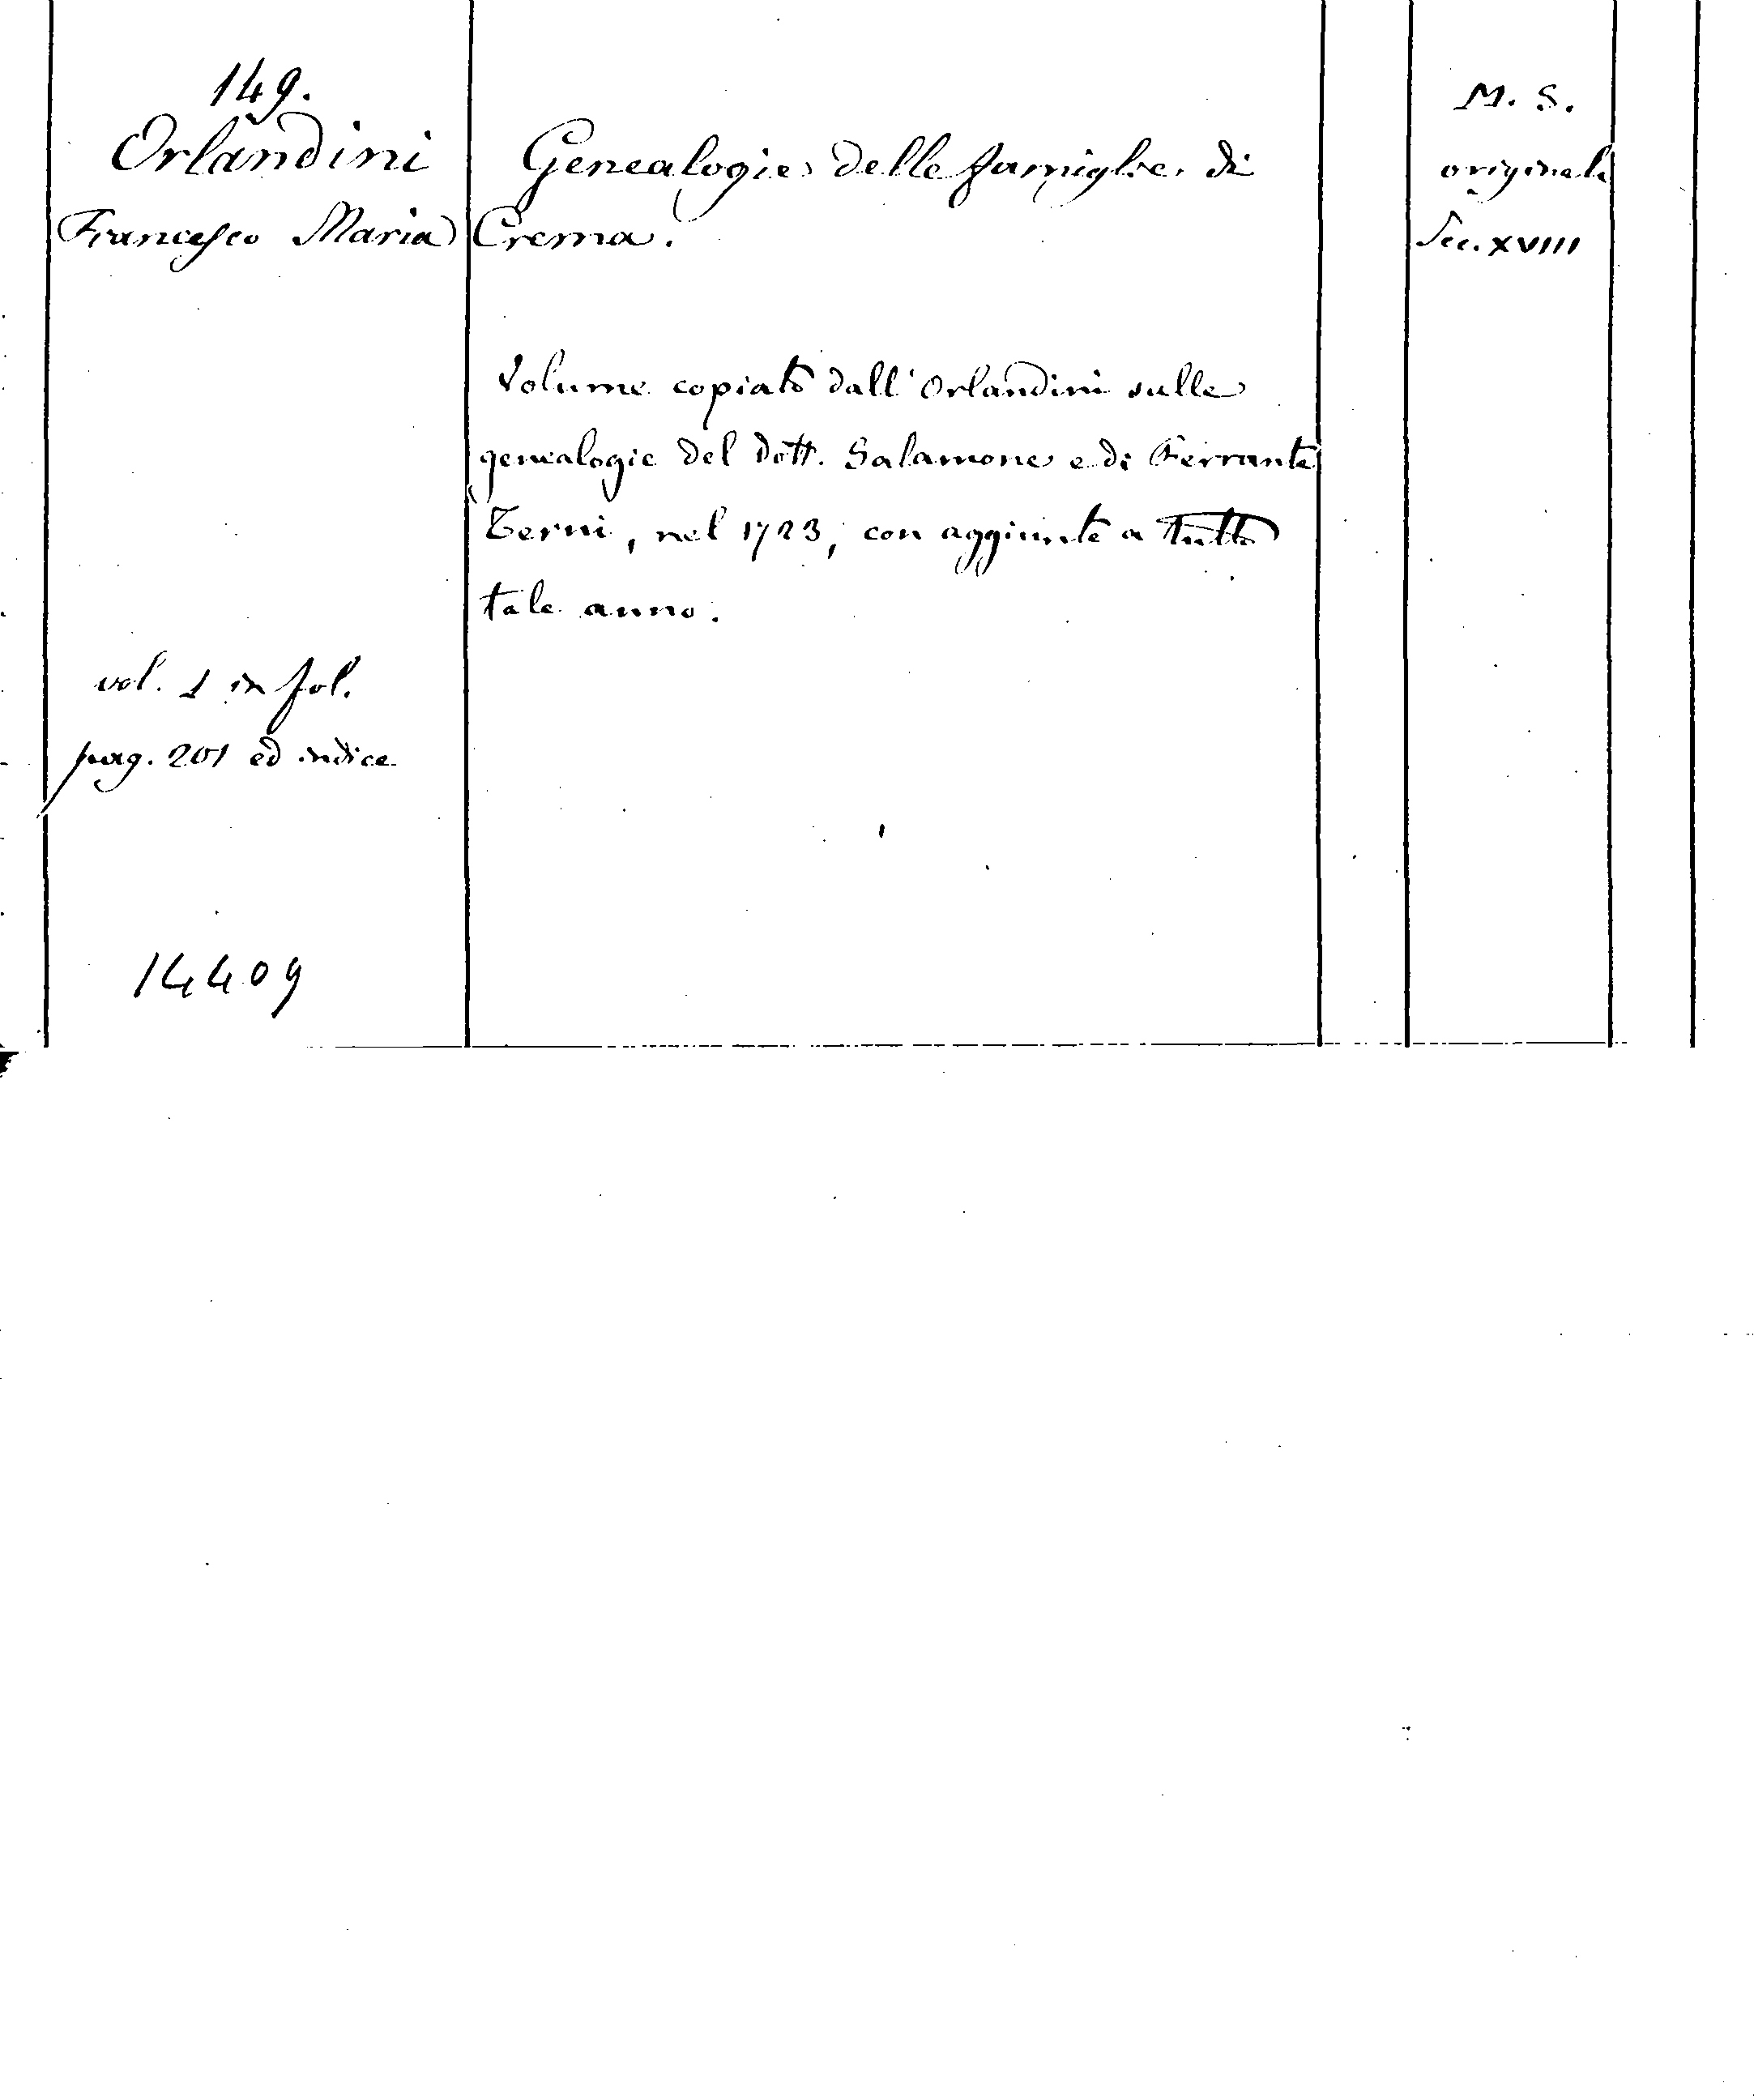 149.
Orlandini
Francesco Maria
Genealogie delle famiglie di
Crema.
M. S.
originale
Sec. XVIII
Volume copiato dall'Orlandini sulle
genealogie del Dott. Salamone e di Ferrante
Terni, nel 1723, con aggiunte a tutto
tale anno.
vol. 1 in fol.
pag. 201 ed indice
14409